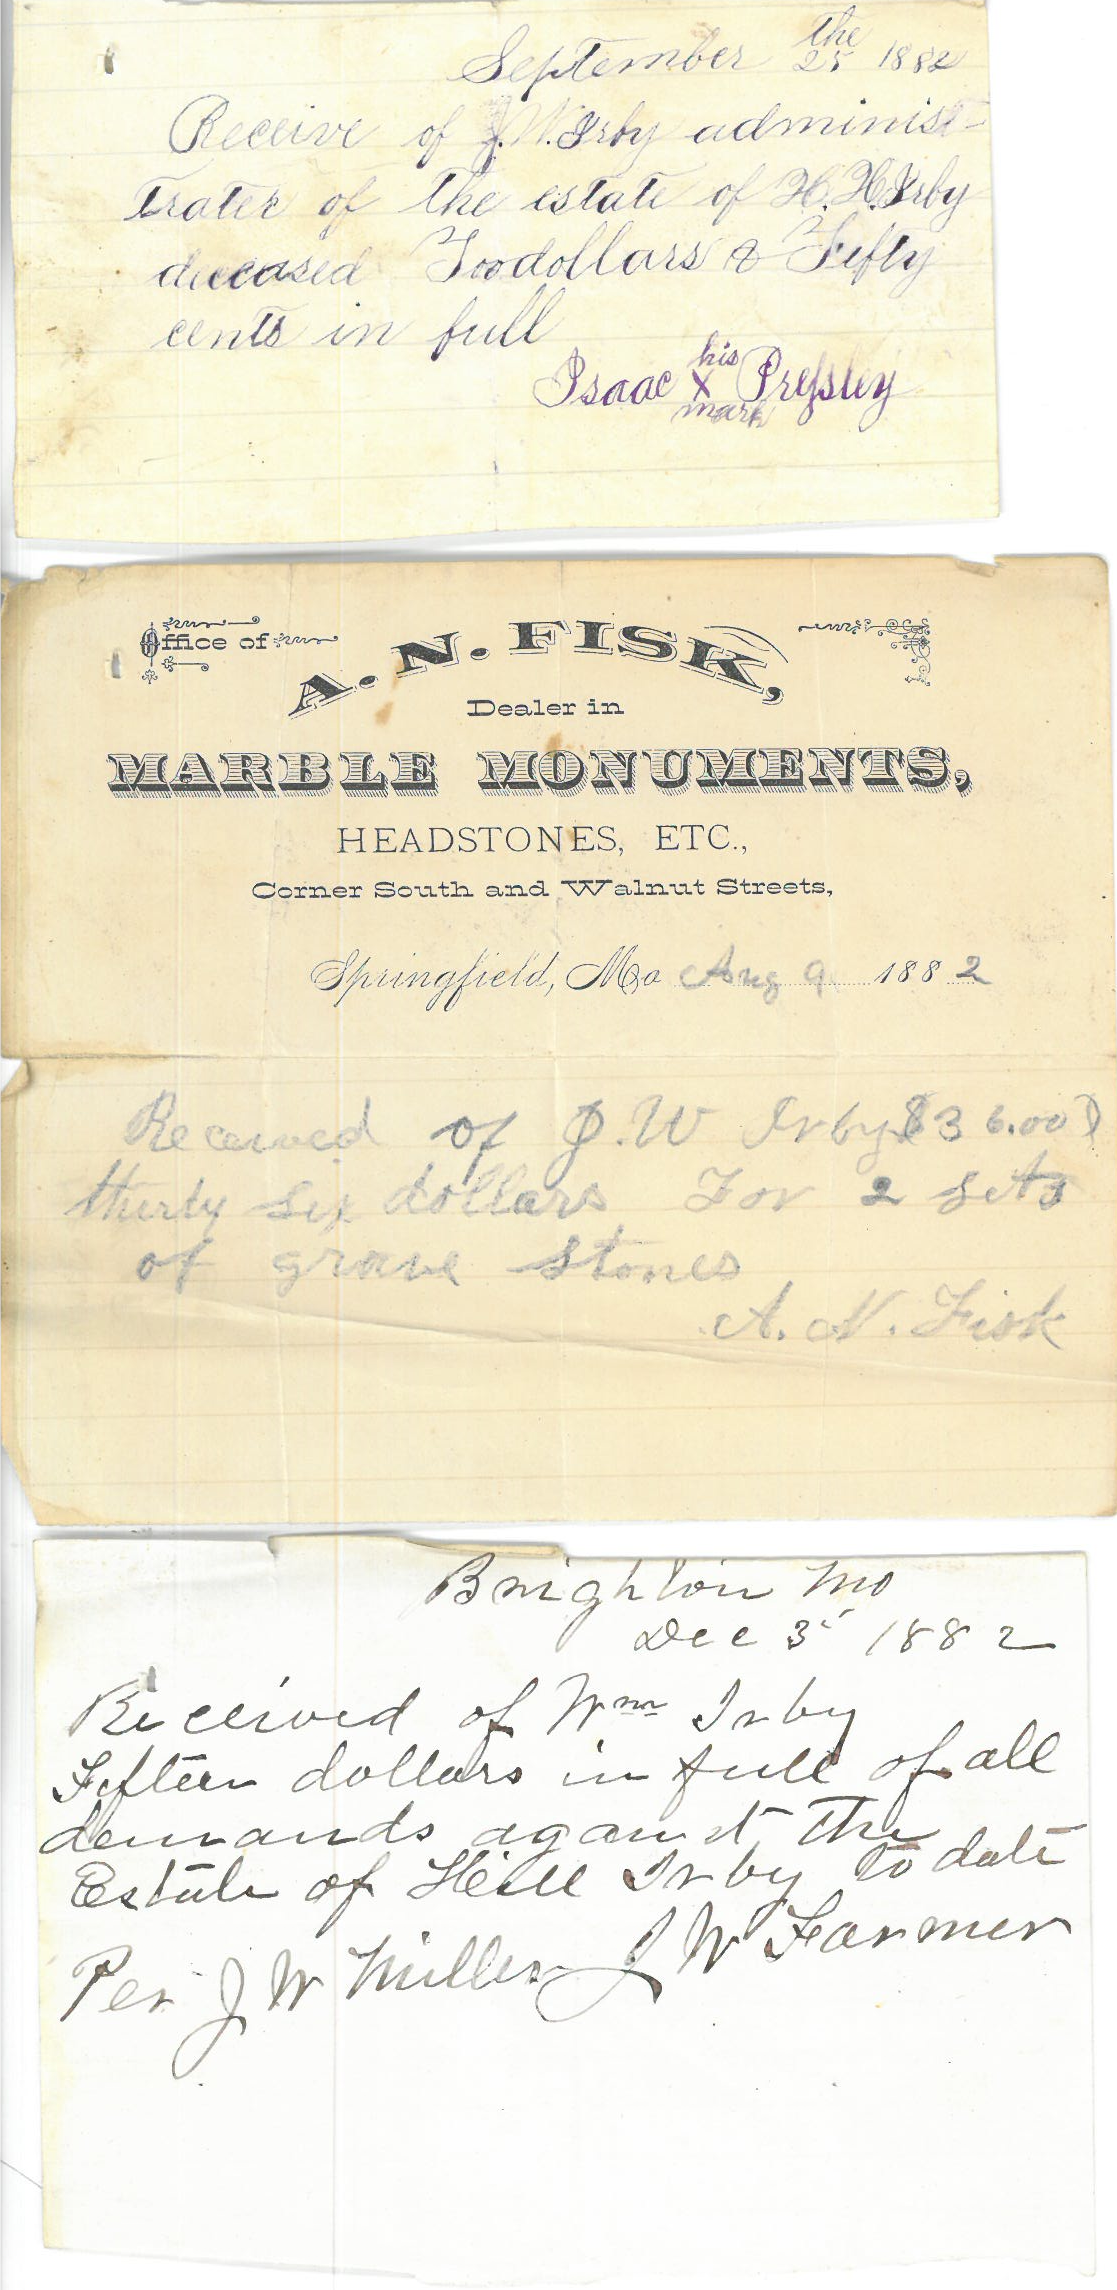 September the 25 1882
Receive of J.W.Irby administ-
trater of the estate of H.H.Irby
deceased Toodollars & Fifty
cents in full
Isaac his X mark Preſsley
Office of
A. N. FISK,
Dealer in
MARBLE MONUMENTS,
HEADSTONES, ETC.,
Corner South and Walnut Streets,
Springfield, Mo Aug 9 1882
Received of J.W Irby $36.00
thirty six dollars For 2 sets
of grave stones
A. N. Fisk
Brighton Mo
Dec 3 1882
Received of Wm Irby
Fifteen dollars in full of all
demands against the
Estate of Hill Irby to date
Per J W Miller J W Farmer